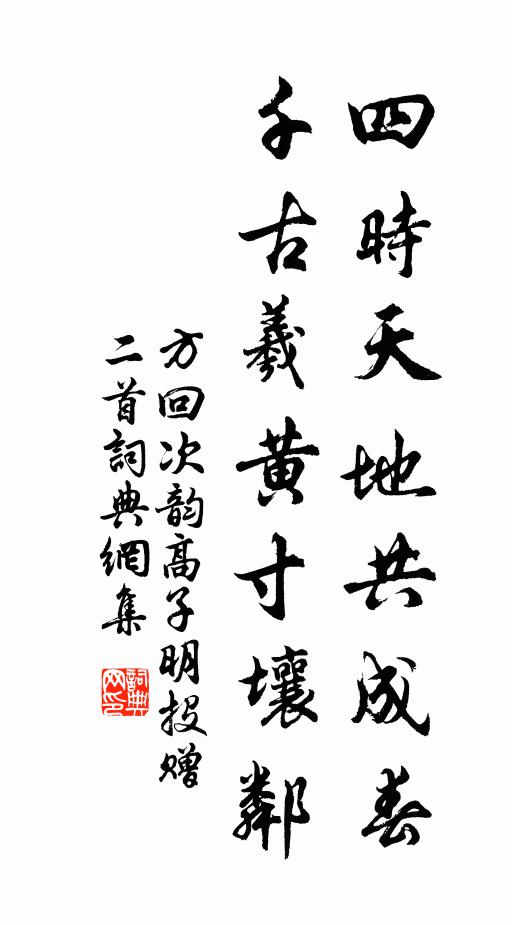 四時天地共成春
千古羲黄寸壤鄰
方回次韵高子明投赠
二首詞典網集
詞典網印